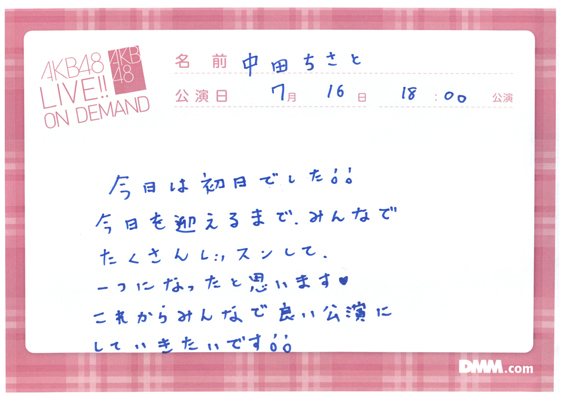 AKB48
LIVE!!
ON DEMAND
AKB
48
名前 中田ちさと
公演日 7月 16日 18:00 公演
今日は初日でした!!
今日を迎えるまで、みんなで
たくさんレッスンして、
一つになったと思います♥
これからみんなで良い公演に
していきたいです!!
DMM.com